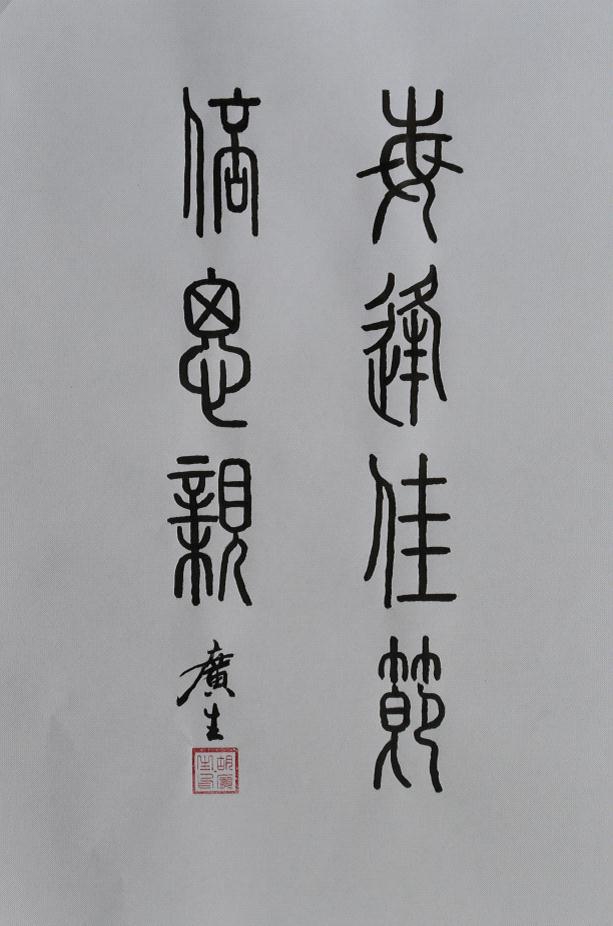 每逢佳節
倍思親
廣生
胡廣
生印